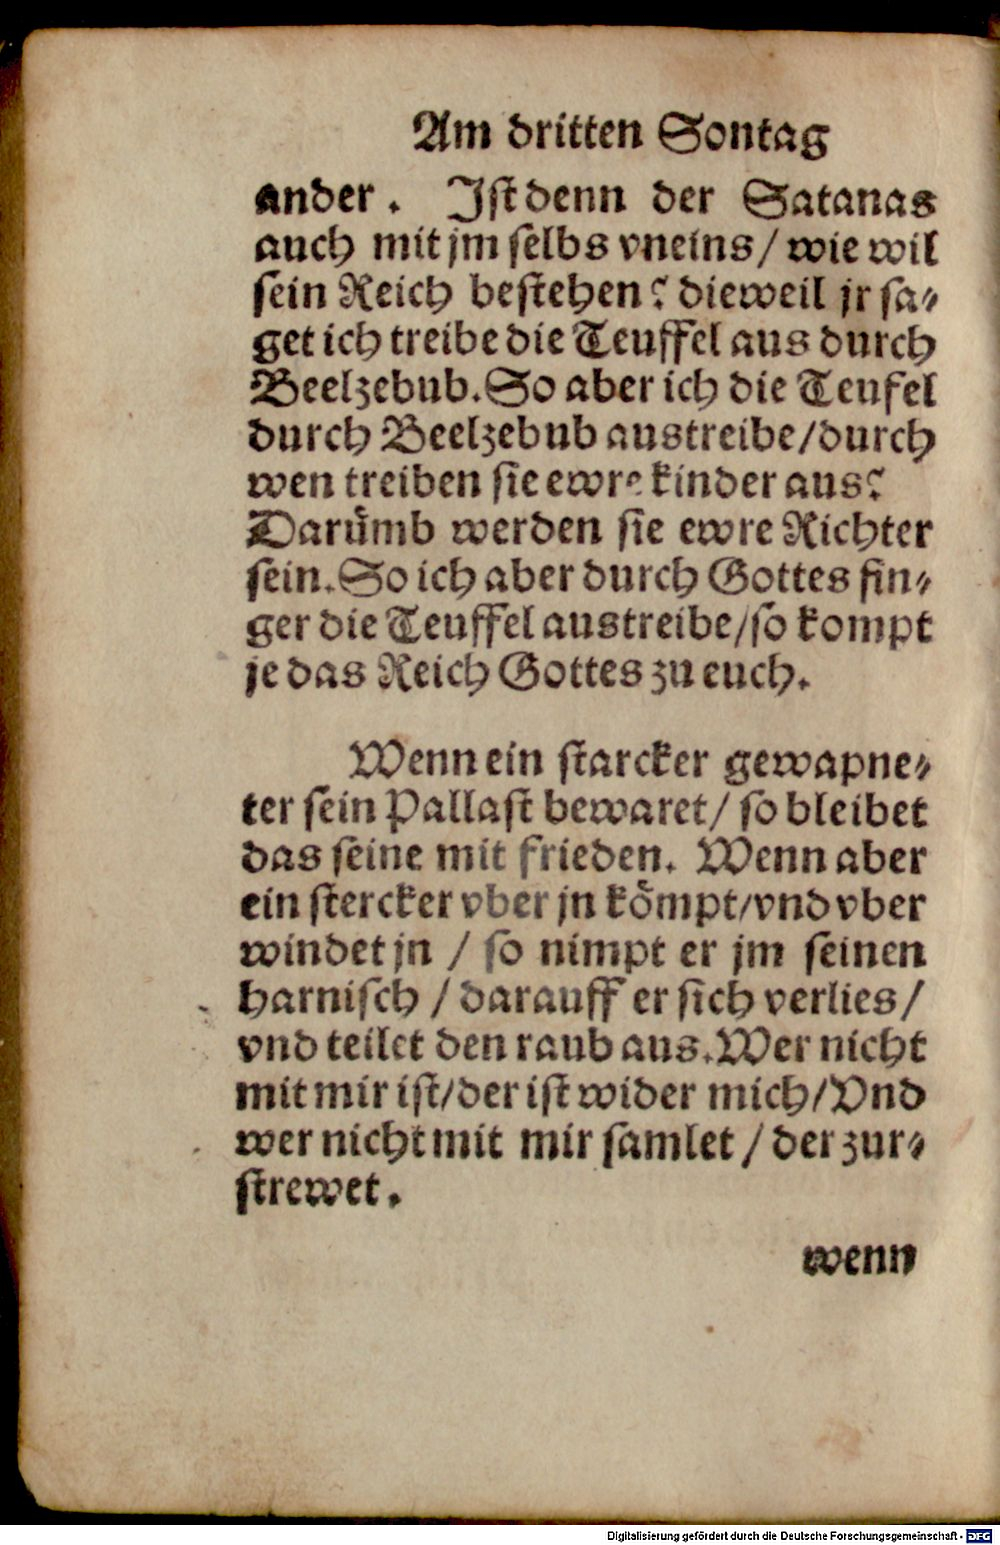 Am dritten Sontag
ander. Jst denn der Satanas
auch mit jm selbs vneins / wie wil
sein Reich bestehen? dieweil jr sa⸗
get ich treibe die Teuffel aus durch
Beelzebub. So aber ich die Teufel
durch Beelzebub austreibe/durch
wen treiben sie ewre kinder aus?
Darůmb werden sie ewre Richter
sein. So ich aber durch Gottes fin⸗
ger die Teuffel austreibe/so kompt
je das Reich Gottes zu euch.
Wenn ein starcker gewapne⸗
ter sein Pallast bewaret/ so bleibet
das seine mit frieden. Wenn aber
ein stercker vber jn koͤmpt/vnd vber
windet jn / so nimpt er jm seinen
harnisch / darauff er sich verlies/
vnd teilet den raub aus. Wer nicht
mit mir ist/der ist wider mich/Vnd
wer nicht mit mir samlet / der zur⸗
strewet.
wenn
Digitalisierung gefördert durch die Deutsche Forschungsgemeinschaft - DFG